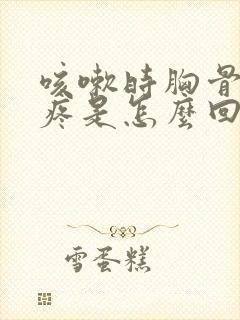 咳嗽时胸骨
疼是怎麼回
雪蛋糕